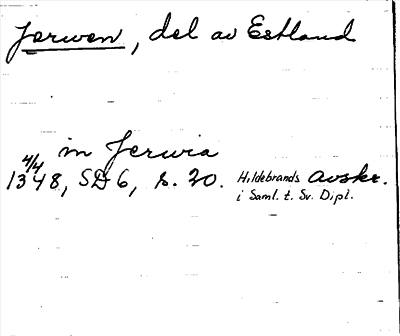 Jerwen, del av Estland
in Jerwia
4/4
1348, SD 6, s. 20. Hildebrands avskr.
i Saml. t. Sv. Dipl.